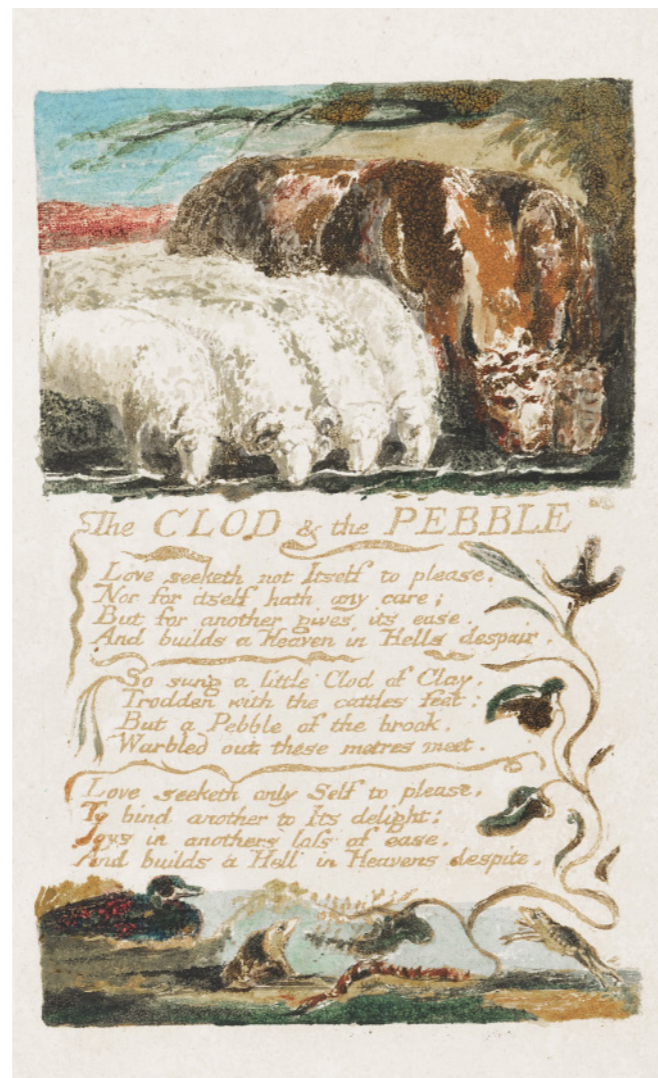 The CLOD & the PEBBLE
Love seeketh not Itself to please,
Nor for itself hath any care;
But for another gives its ease.
And builds a Heaven in Hells despair.
So sung a little Clod of Clay,
Trodden with the cattles feet:
But a Pebble of the brook,
Warbled out these metres meet.
Love seeketh only Self to please,
To bind another to Its delight:
Joys in anothers loss of ease,
And builds a Hell in Heavens despite.